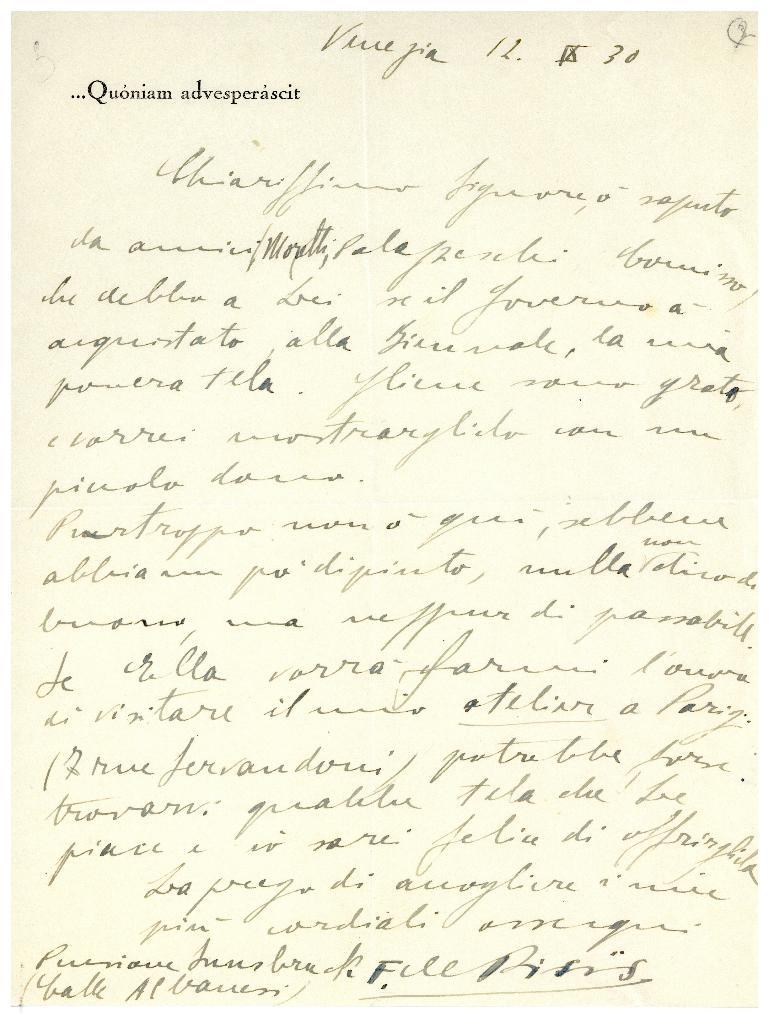 Venezia 12. IX 30
...Quóniam advesperáscit
Chiarissimo Signore, ò saputo
da amici (Moretti, Palazzeschi Comisso)
che debbo a Lei se il Governo à
acquistato, alla Biennale, la mia
povera tela. Gliene sono grato,
e vorrei mostrarglielo con un
piccolo dono.
Purtroppo non ò qui, sebbene
abbia un pò dipinto, nulla non dico di
buono, ma neppur di passabile.
Se Ella vorrà farmi l'onore
di visitare il mio atelier a Parigi
(7 rue Servandoni) potrebbe forse
trovarvi qualche tela che Le
piace e io sarei felice di offrirgliela
La prego di accogliere i miei
più cordiali ossequi
F. de Pisis
Pensione Innsbruck
(Calle Albanesi)